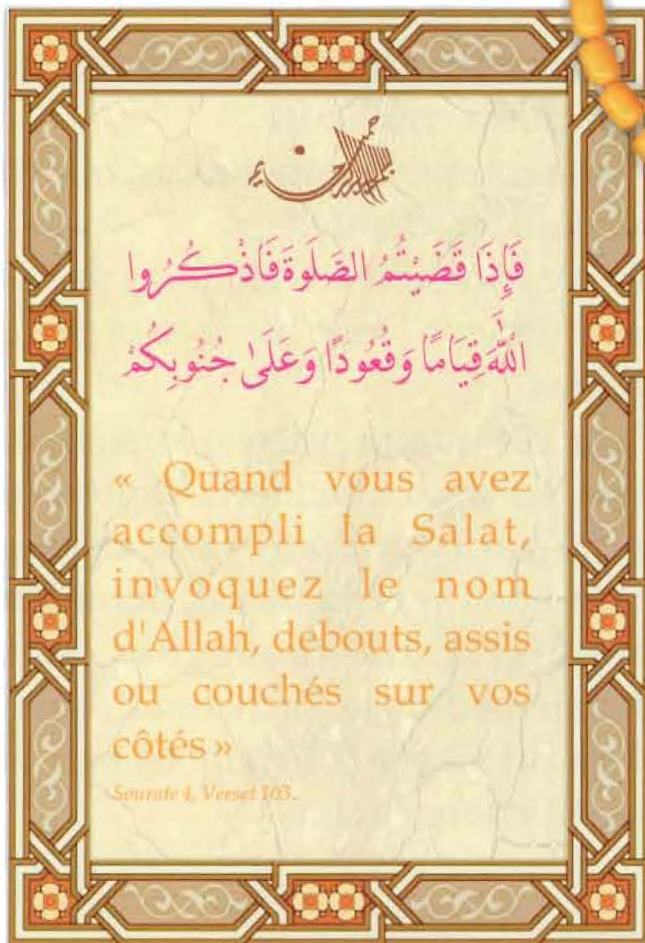 بسم الله الرحمن الرحيم
فَإِذَا قَضَيْتُمُ الصَّلَوٰةَ فَاذْكُرُوا
اللَّهَ قِيَامًا وَقُعُودًا وَعَلَىٰ جُنُوبِكُمْ
« Quand vous avez
accompli la Salat,
invoquez le nom
d'Allah, debouts, assis
ou couchés sur vos
côtés »
Sourate 4, Verset 103.